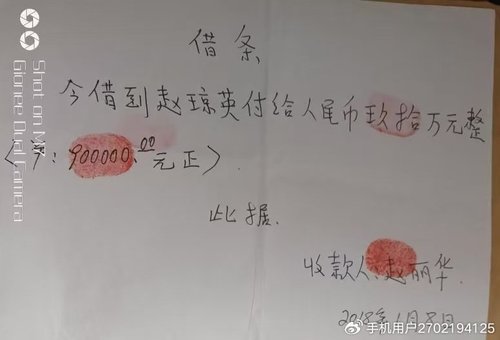 借条
今借到赵琼英付给人民币玖拾万元整
(¥:900000.00元正)
此据.
收款人:赵丽华
2018年1月8日
Shot on M
Gionee Dual Camera
手机用户2702194125